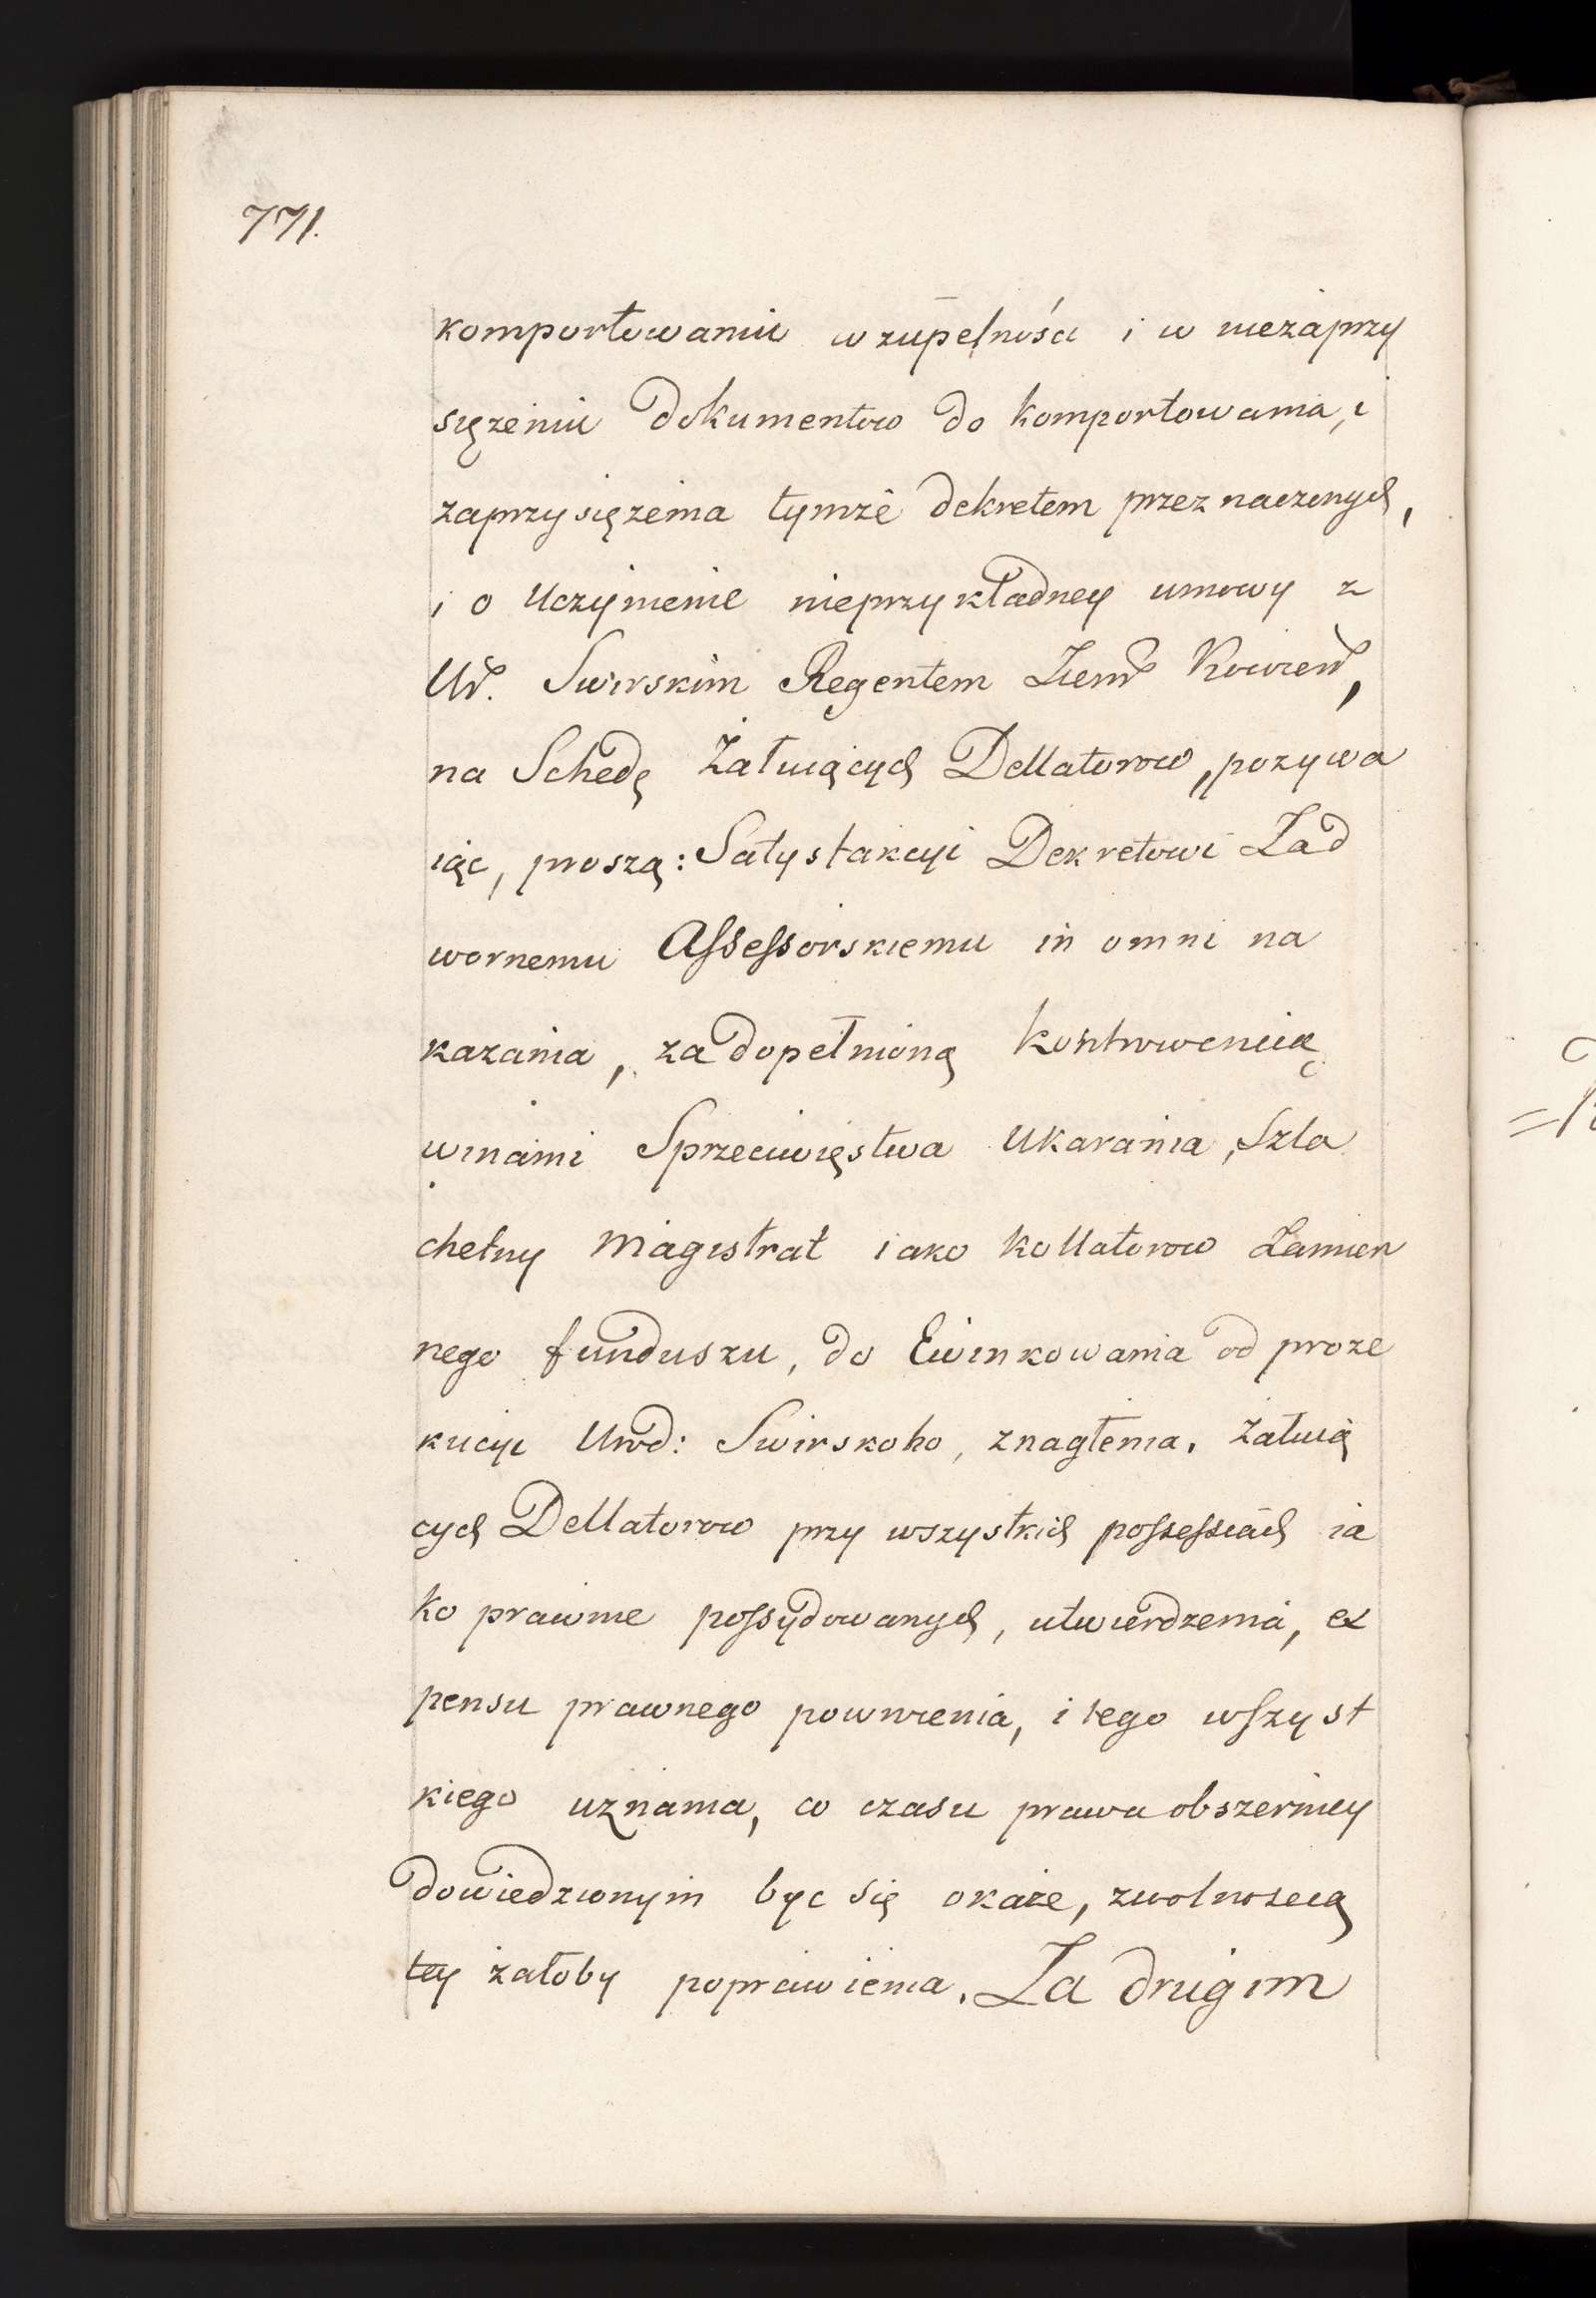 771.
komportowaniu w zupełności i w niezaprzy
siężeniu dokumentow do komportowania, i
zaprzysiężenia tymże dekretem przeznaczonych,
i o Uczynienie nieprzykładney umowy z
Ur. Swirskim Regentem Ziem Kowien,
na Schedę Żałuiących Dellatorow, pozywa
iąc, proszą: Satysfakcyi Dekretowi Zad
wornemu Assessorskiemu in omni na
kazania, za dopełnioną kontrwencią
winami Sprzeciwięstwa Ukarania, Szla
chetny Magistrat iako kollatorow Zamien
nego funduszu, do Ewinkowania od proze
kucyi Urod: Swirskoho, znaglenia, Żałuią
cych Dellatorow przy wszystkich possessiach ia
ko prawnie possydowanych, utwierdzenia, ex
pensu prawnego powrocenia, i tego wszyst
kiego uznania, co czasu prawa obszerniey
dowiedzionym byc się okaże, zwolnoscią
tey żałoby poprawienia. Za drugim